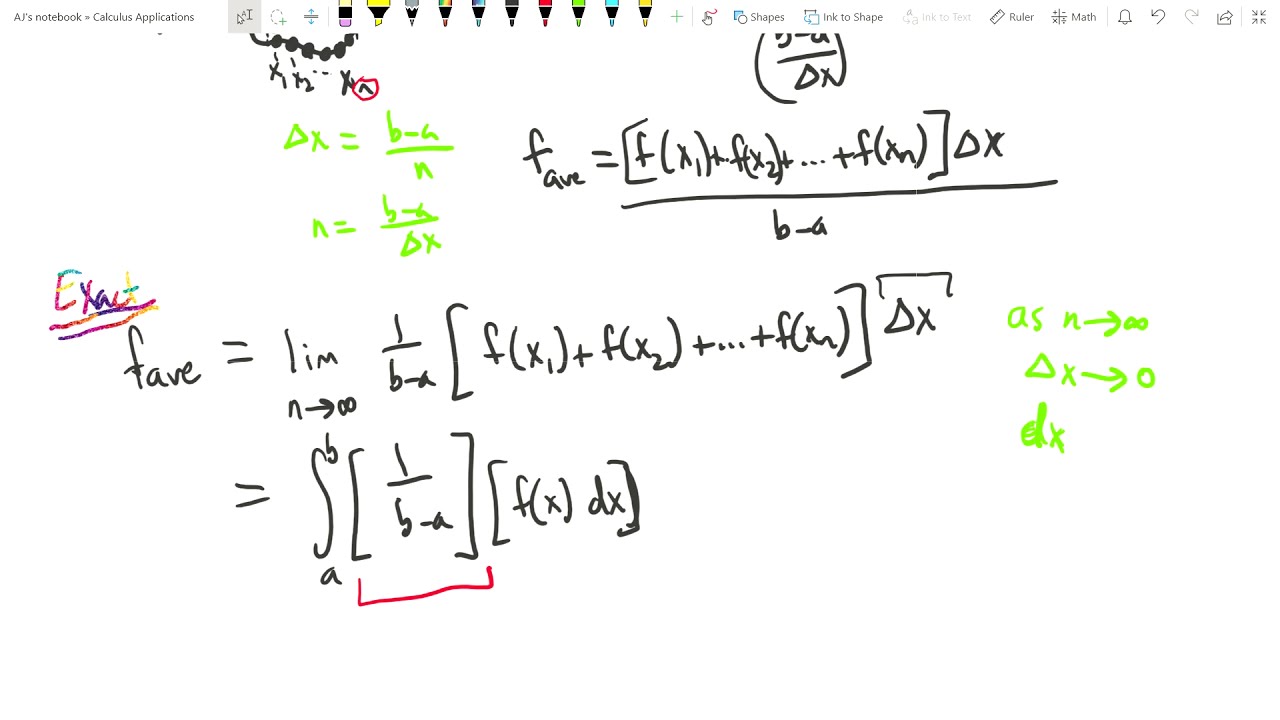 AJ's notebook » Calculus Applications
Shapes Ink to Shape Ink to Text Ruler Math
x₁ x₂ ... xₙ
(b-a/Δx)
Δx = b-a/n
n = b-a/Δx
f_ave = [f(x₁)+f(x₂)+...+f(xₙ)]Δx / b-a
Exact
f_ave = lim n→∞ 1/b-a [f(x₁)+f(x₂)+...+f(xₙ)] Δx
as n→∞
Δx→0
dx
= ∫ₐᵇ [1/b-a] [f(x) dx]